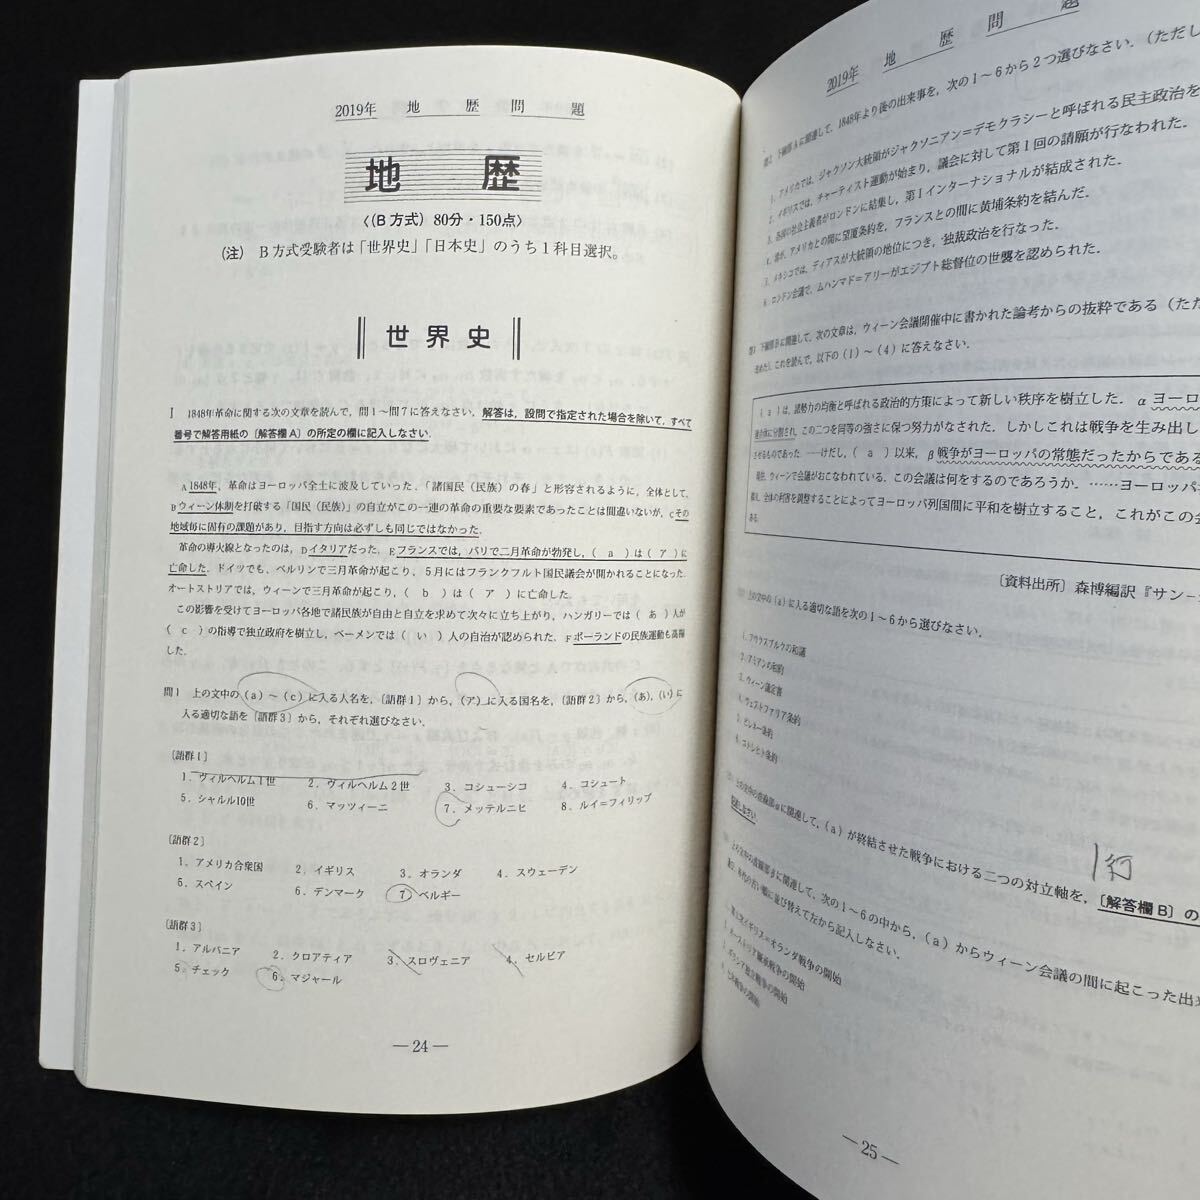 2019年 地 歴 問 題
地 歴
〈(B方式) 80分・150点〉
(注) B方式受験者は「世界史」「日本史」のうち1科目選択。
世界史
Ⅰ 1848年革命に関する次の文章を読んで，問1～問7に答えなさい．解答は，設問で指定された場合を除いて，すべて
番号で解答用紙の〔解答欄A〕の所定の欄に記入しなさい．
A 1848年，革命はヨーロッパ全土に波及していった．「諸国民（民族）の春」と形容されるように，全体として，
Bウィーン体制を打破する「国民（民族）」の自立がこの一連の革命の重要な要素であったことは間違いないが，Cその
地域毎に固有の課題があり，目指す方向は必ずしも同じではなかった．
革命の導火線となったのは，Dイタリアだった．Eフランスでは，パリで二月革命が勃発し，( a )は( ア )に
亡命した．ドイツでも，ベルリンで三月革命が起こり，5月にはフランクフルト国民議会が開かれることになった．
オーストリアでは，ウィーンで三月革命が起こり，( b )は( ア )に亡命した．
この影響を受けてヨーロッパ各地で諸民族が自由と自立を求めて次々に立ち上がり，ハンガリーでは( あ )人が
( c )の指導で独立政府を樹立し，ベーメンでは( い )人の自治が認められた．Fポーランドの民族運動も高揚
した．
問1 上の文中の(a)～(c)に入る人名を，〔語群1〕から，(ア)に入る国名を，〔語群2〕から，(あ)，(い)に
入る適切な語を〔語群3〕から，それぞれ選びなさい．
〔語群1〕
1．ヴィルヘルム1世 2．ヴィルヘルム2世 3．コシューシコ 4．コシュート
5．シャルル10世 6．マッツィーニ 7．メッテルニヒ 8．ルイ＝フィリップ
〔語群2〕
1．アメリカ合衆国 2．イギリス 3．オランダ 4．スウェーデン
5．スペイン 6．デンマーク 7．ベルギー
〔語群3〕
1．アルバニア 2．クロアティア 3．スロヴェニア 4．セルビア
5．チェック 6．マジャール
—24—
2019年 地 歴 問 題
問2 下線部Aに関連して，1848年より後の出来事を，次の1～6から2つ選びなさい．（ただし
1．アメリカでは，ジャクソン大統領がジャクソニアン＝デモクラシーと呼ばれる民主政治を
2．イギリスでは，チャーティスト運動が始まり，議会に対して第1回の請願が行なわれた．
3．各国の社会主義者がロンドンに結集し，第1インターナショナルが結成された．
4．清が，アメリカとの間に望厦条約を，フランスとの間に黄埔条約を結んだ．
5．メキシコでは，ディアスが大統領の地位につき，独裁政治を行なった．
6．ロンドン会議で，ムハンマド＝アリーがエジプト総督位の世襲を認められた．
問3 下線部Bに関連して，次の文章は，ウィーン会議開催中に書かれた論考からの抜粋である（ただ
改めた)．これを読んで，以下の(1)～(4)に答えなさい．
( a )は，諸勢力の均衡と呼ばれる政治的方策によって新しい秩序を樹立した．αヨーロ
連合体に分割され，この二つを同等の強さに保つ努力がなされた．しかしこれは戦争を生み出し
させるものであった．……けだし，( a )以来，β戦争がヨーロッパの常態だったからである
現在，ウィーンで会議がおこなわれている．この会議は何をするのであろうか．……ヨーロッパ
え，全体の利害を調整することによってヨーロッパ列国間に平和を樹立すること，これがこの会
ある．
〔資料出所〕森博編訳『サン－
上の文中の(a)に入る適切な語を次の1～6から選びなさい．
1．アウクスブルクの和議
2．アミアンの和約
3．ウィーン議定書
4．ウェストファリア条約
5．ピレネー条約
6．ユトレヒト条約
上の文中の波線部αに関連して，(a)が終結させた戦争における二つの対立軸を，〔解答欄B〕の
記述しなさい．
1行
上の文中の波線部βに関連して，次の1～6の中から，(a)からウィーン会議の間に起こった出来
選び，年代の古い順に並び替えて左から記入しなさい．
1．第1次イギリス＝オランダ戦争の開始
2．オーストリア継承戦争の開始
3．ギリシア独立戦争の開始
4．七年戦争の開始
—25—